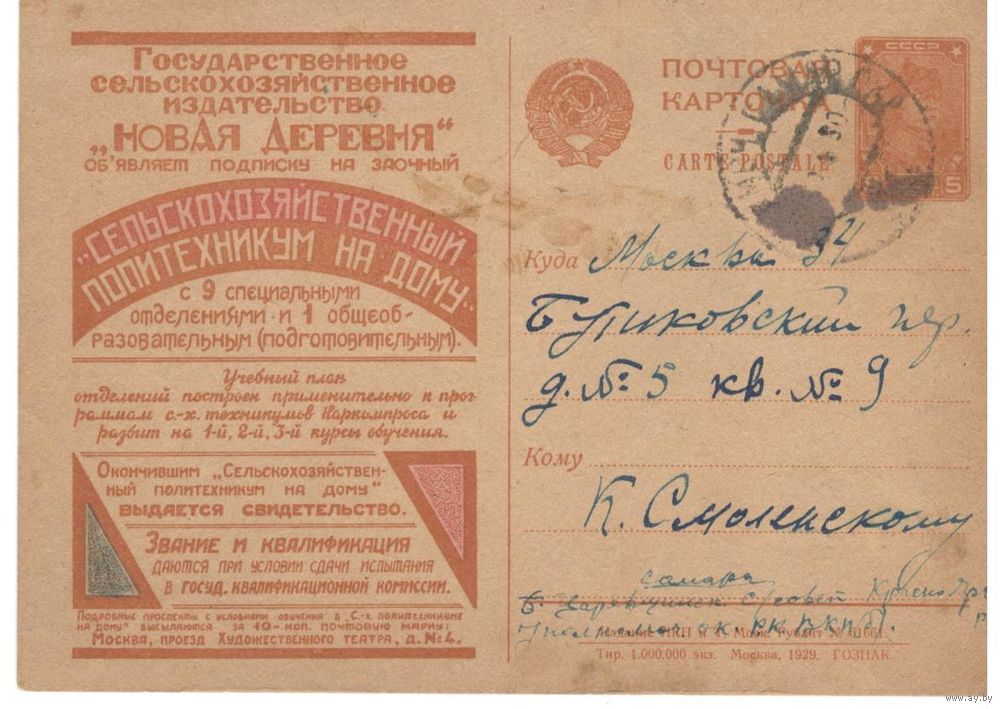 Государственное
сельскохозяйственное
издательство
„Новая Деревня“
об'являет подписку на заочный
„Сельскохозяйственный
политехникум на дому“
с 9 специальными
отделениями и 1 общеоб-
разовательным (подготовительным).
Учебный план
отделений построен применительно к прог
раммам с.-х. техникумов Наркомпроса и
разбит на 1-й, 2-й, 3-й курсы обучения.
Окончившим „Сельскохозяйствен-
ный политехникум на дому“
выдается свидетельство.
Звание и квалификация
даются при условии сдачи испытания
в госуд. квалификационной комиссии.
Подробные проспекты с условиями обучения в С.-х политехникуме
на дому“ высылаются за 10-коп. почтовую марку:
Москва, проезд Художественного театра, д. №4.
СССР
ПОЧТОВАЯ
КАРТОЧКА
CARTE POSTALE
5
Куда Москва 34
Бутиковский пер.
д. № 5 кв. № 9
Кому
К. Смоленскому
самара
Издание НКП и Т. Мособлит №
Тир. 1.000.000 экз. Москва, 1929. ГОЗНАК
www.ay.by